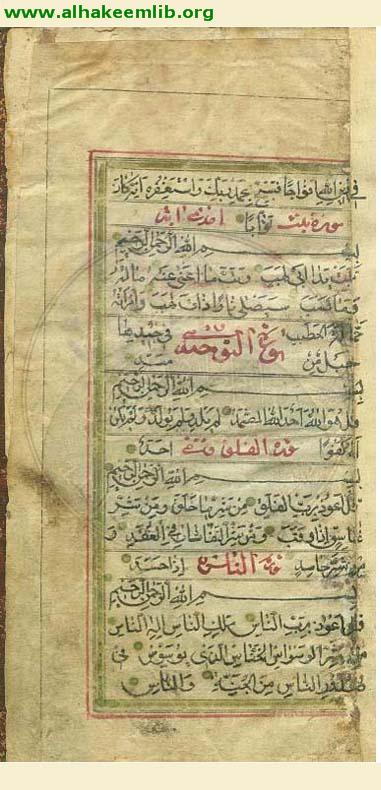 www.alhakeemlib.org
في دين الله افواجا فسبح بحمد ربك واستغفره انه كان
سورة تبت توابا
بسم الله الرحمن الرحيم
تبت يدا ابي لهب وتب ما اغنى عنه ماله
وما كسب سيصلى نارا ذات لهب وامراته
حمالة الحطب في جيدها
حبل من مسد
التوحيد
بسم الله الرحمن الرحيم
قل هو الله احد الله الصمد لم يلد ولم يولد ولم يكن
له كفوا احد سورة الفلق
بسم الله الرحمن الرحيم
قل اعوذ برب الفلق من شر ما خلق ومن شر
غاسق اذا وقب ومن شر النفاثات في العقد و
من شر حاسد اذا حسد سورة الناس
بسم الله الرحمن الرحيم
قل اعوذ برب الناس ملك الناس اله الناس
من شر الوسواس الخناس الذي يوسوس في
صدور الناس من الجنة والناس